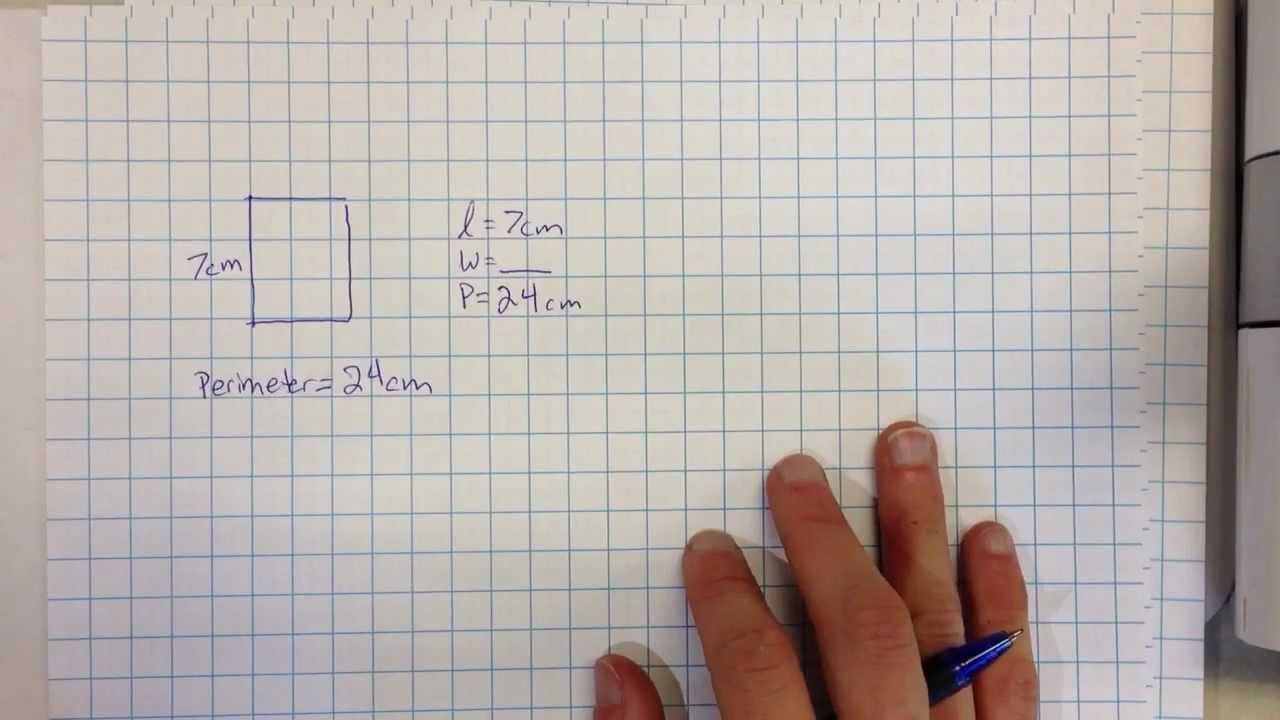 7cm
l = 7cm
w = ___
P = 24cm
Perimeter = 24cm